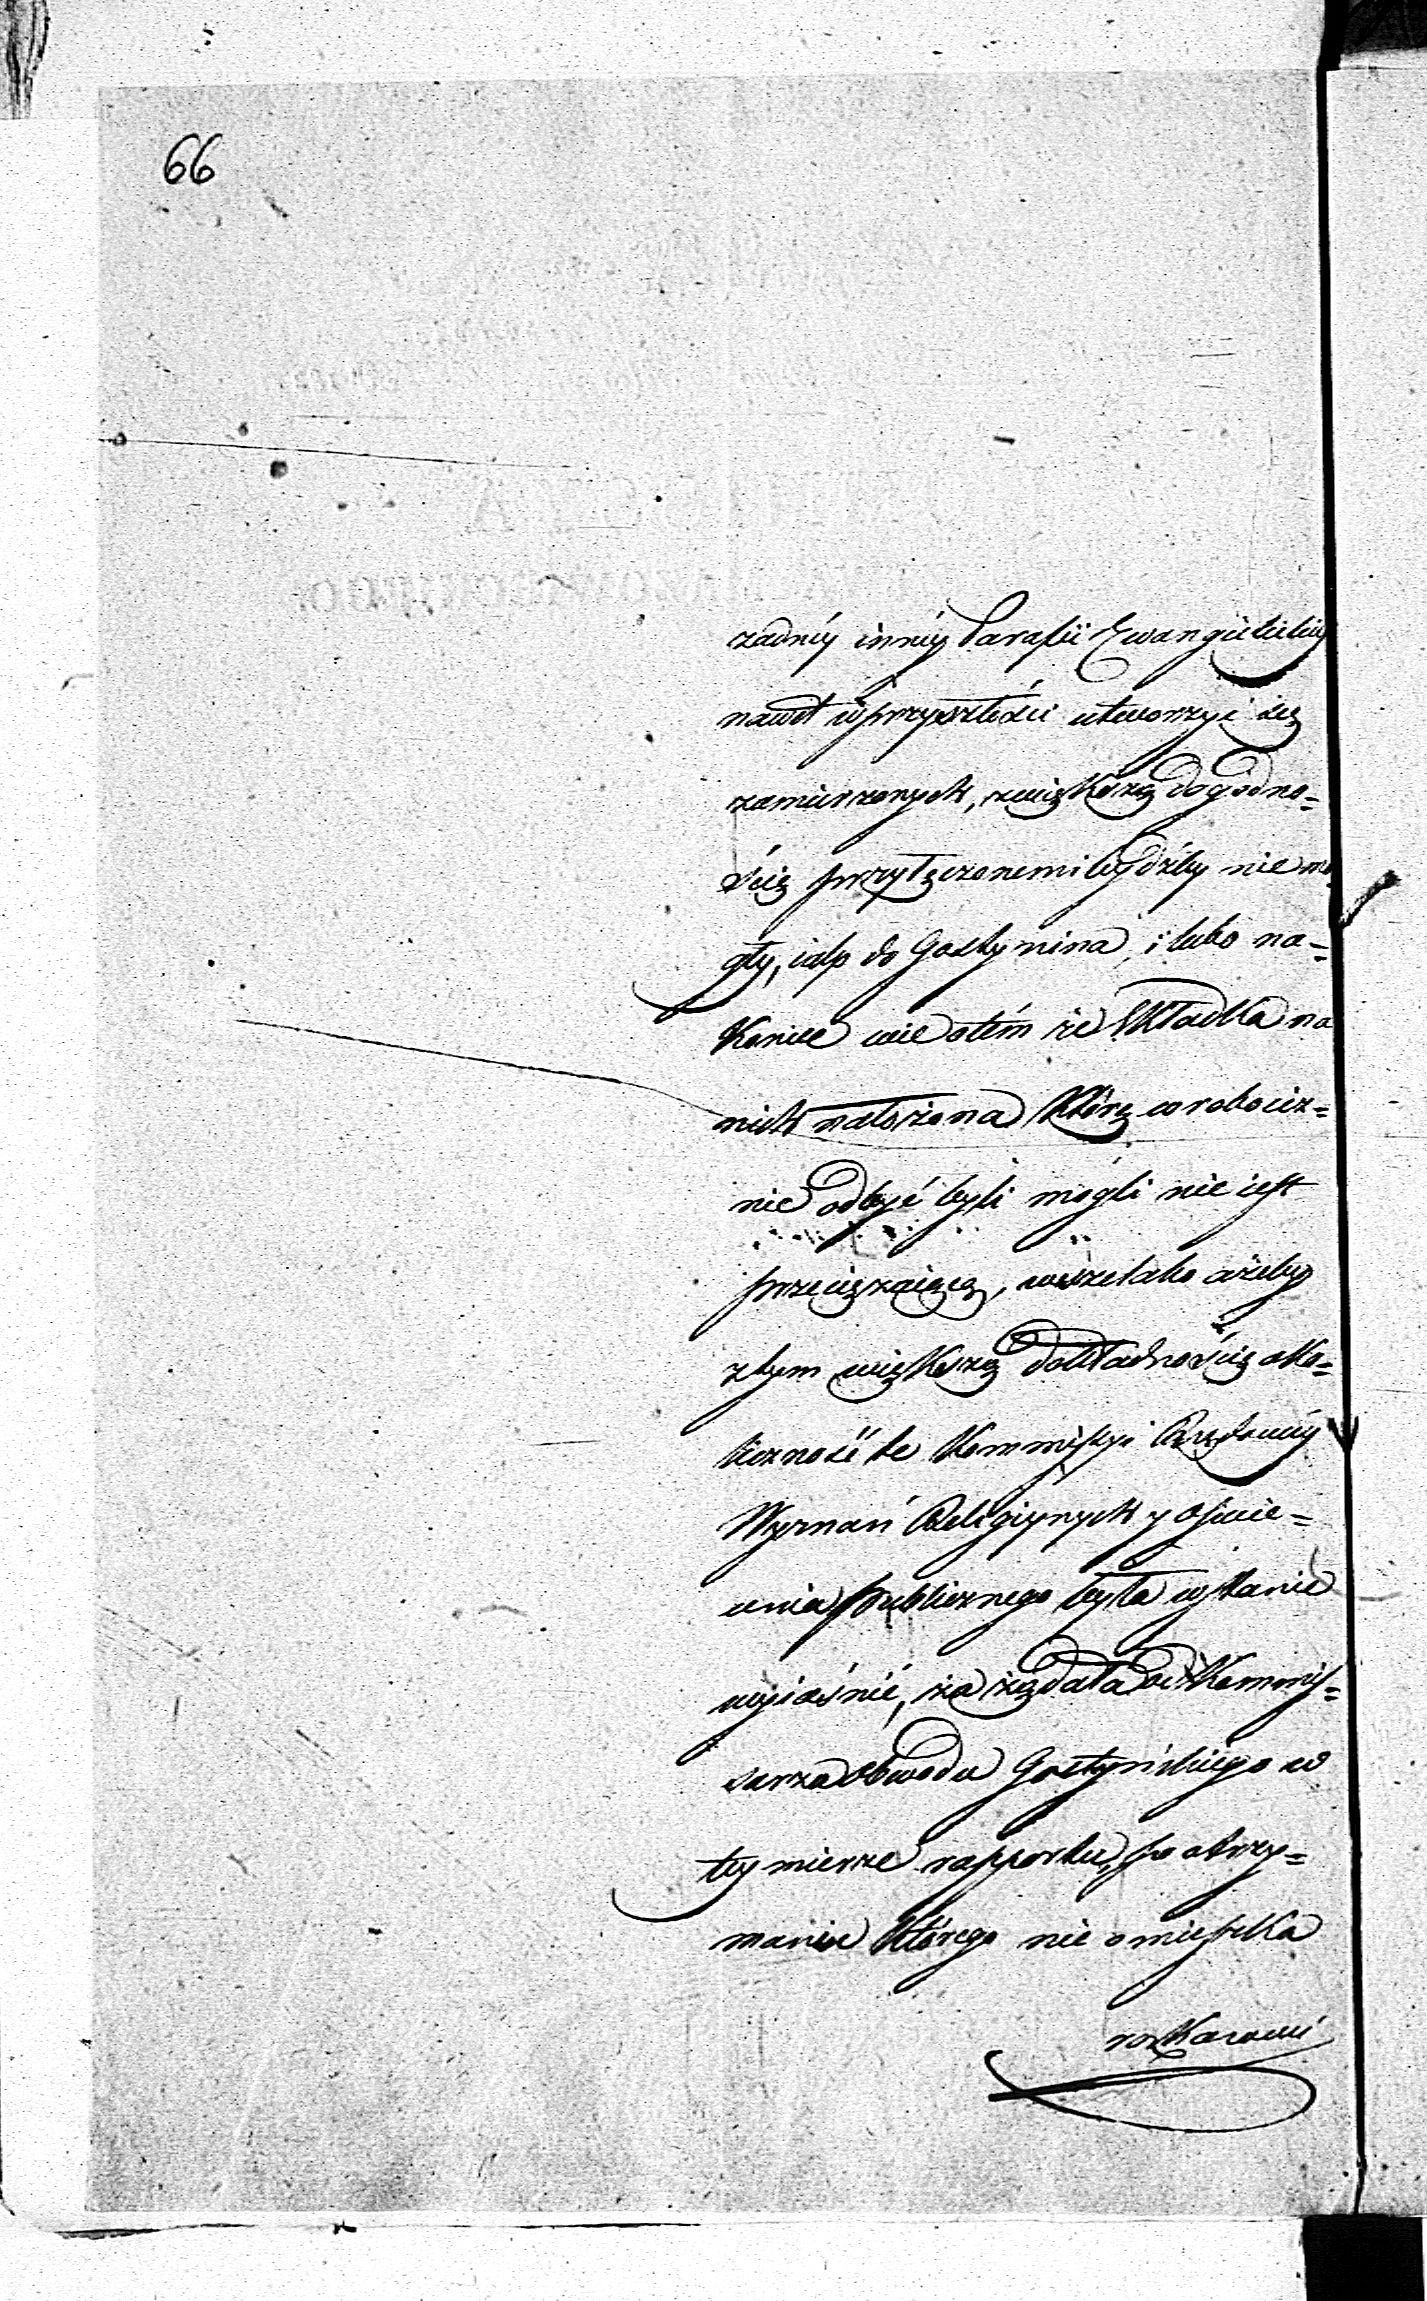 66
żadnéy innéy Parafii Ewangielickiéy
nawet w przyszłości utworzyć się
zamierzonych, z większą dogodno=
ścią przyłączonemi bydźby nie mo
gły, iak do Gostynina, i lubo na=
koniec wie o tém że składka na
nich nałożona którą w robociz=
nie odbyć byli mogli nie iest
przeciążaiącą, wszelako ażeby
z tym większą dokładnością oko=
liczność tę Kommissyi Rządowéy
Wyznań Religiynych y Oświe=
cenia Publicznego była w stanie
wyiaśnić, zażądała od Kommis=
sarza Obwodu Gostyńskiego w
tey mierze rapportu, po otrzy=
maniu którego nie omieszka